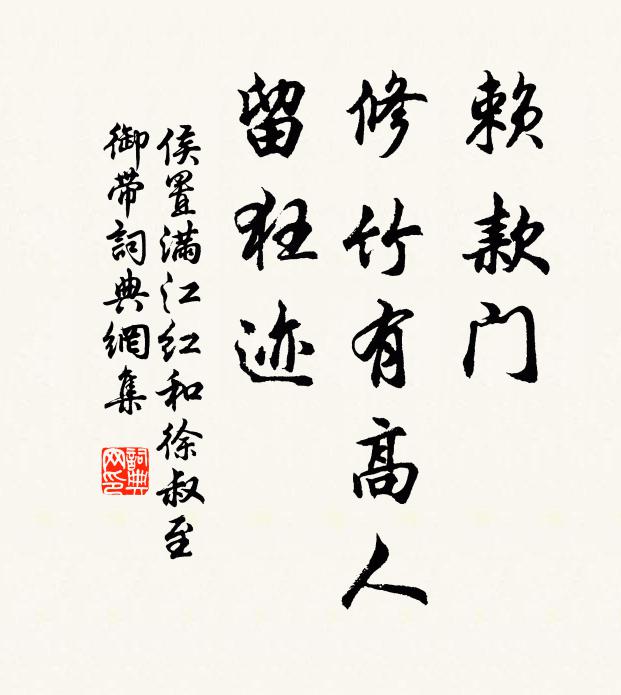 赖款门
修竹有高人
留狂迹
侯置满江红和徐叔至
御带词典網集
詞典网印